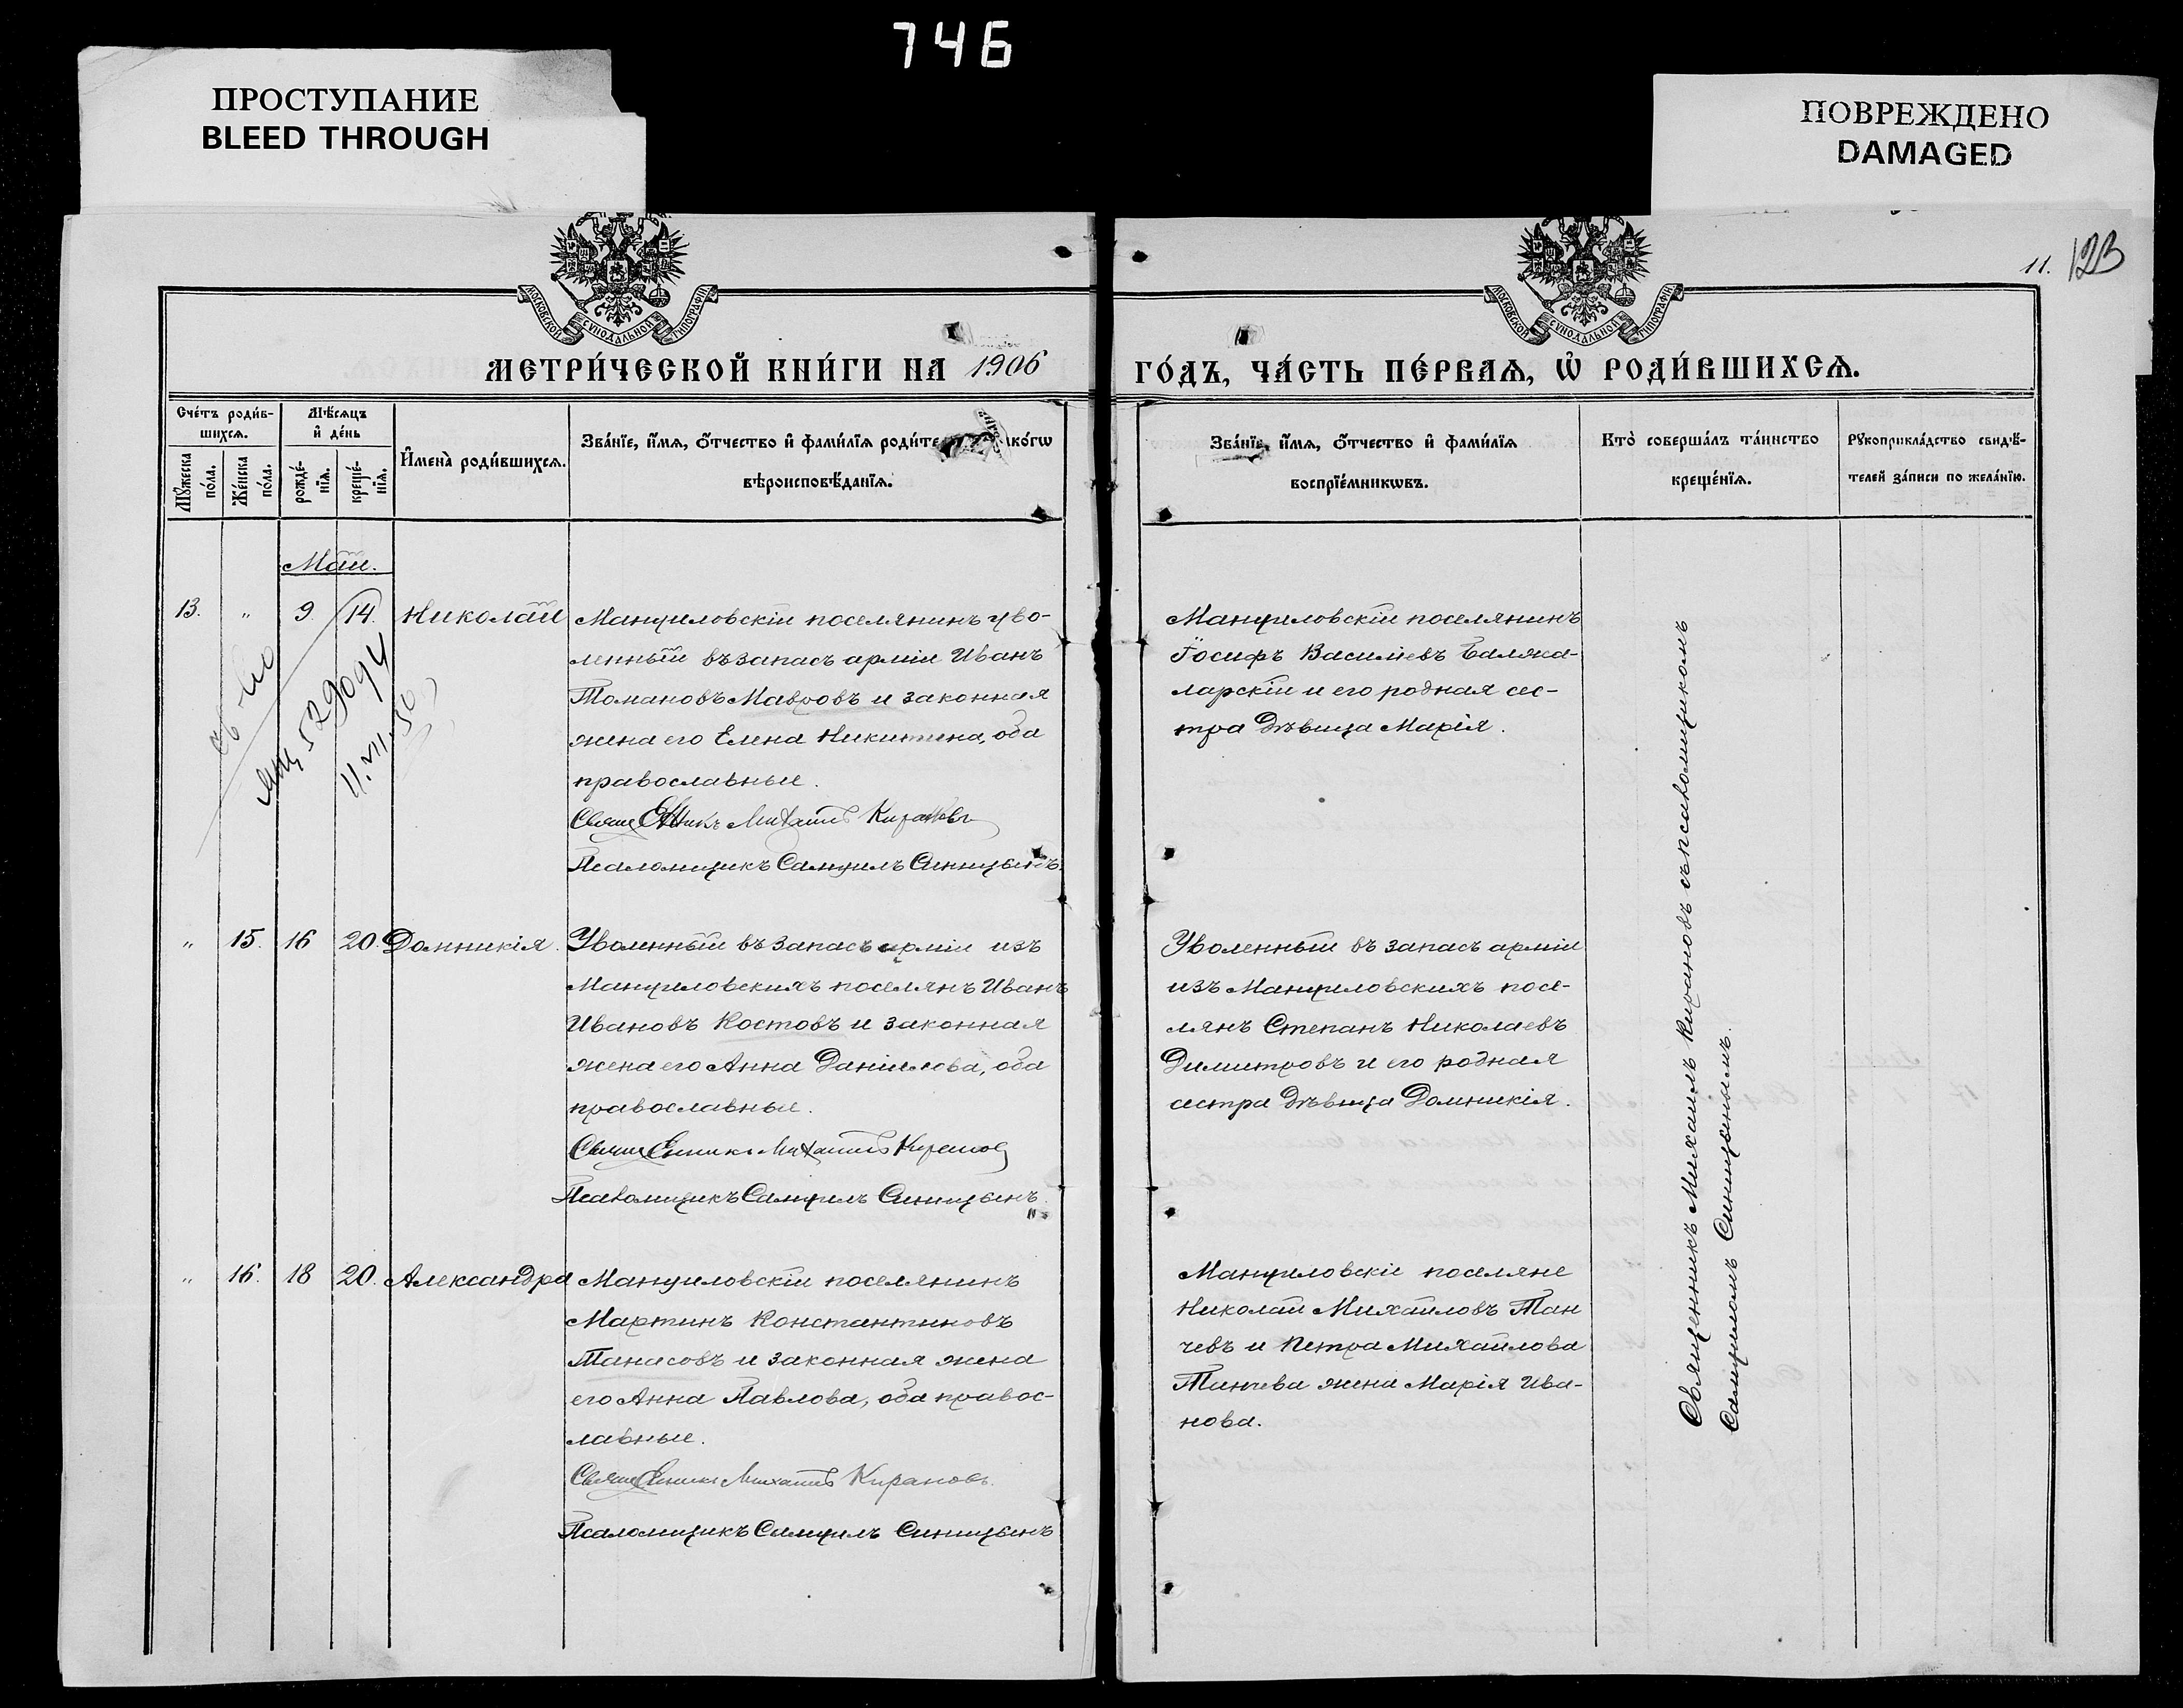 746
ПРОСТУПАНИЕ
BLEED THROUGH
ПОВРЕЖДЕНО
DAMAGED
МОСКОВСКОЙ СУНОДАЛЬНОЙ ТИПОГРАФІИ
МОСКОВСКОЙ СУНОДАЛЬНОЙ ТИПОГРАФІИ
11. 123
МЕТРИ́ЧЕСКОЙ КНИ́ГИ НА 1906
ГО́ДЪ, ЧА́СТЬ ПЕ́РВАѦ, Ѡ҆ РОДИ́ВШИХСѦ.
Сче́тъ роди́в-
шихсѧ.
Мꙋ́жеска
по́ла.
Же́нска
по́ла.
Мѣ́сѧцъ
и҆ де́нь
рожде́-
нїѧ.
креще́-
нїѧ.
И҆мена̀ роди́вшихсѧ.
Зва́нїе, и҆́мѧ, ѻ҆́тчество и҆ фами́лїѧ роди́те ко́гѡ
вѣроисповѣ́данїѧ.
Зва́нїе, и҆́мѧ, ѻ҆́тчество и҆ фами́лїѧ
воспрїе́мникѡвъ.
Кто̀ соверша́лъ та́инство
креще́нїѧ.
Рꙋкоприкла́дство свидѣ́-
телей за́писи по жела́нїю.
Май.
13. „ 9. 14. Николай
Мануиловскій поселянинъ уво-
ленный въ запасъ арміи Иванъ
Томановъ Мавровъ и законная
жена его Елена Никитина, оба
православные.
Священникъ Михаилъ Кирановъ
Псаломщикъ Самуилъ Синицынъ.
529094
11.VII.50
Мануиловскій поселянинъ
Іосифъ Василіевъ Балжа-
ларскій и его родная сес-
тра дѣвица Марія.
„ 15. 16 20. Домникія.
Уволенный въ запасъ арміи изъ
Мануиловскихъ поселянъ Иванъ
Ивановъ Костовъ и законная
жена его Анна Даніилова, оба
православные.
Священникъ Михаилъ Кирановъ
Псаломщикъ Самуилъ Синицынъ.
Уволенный въ запасъ арміи
изъ Мануиловскихъ посе-
лянъ Степанъ Николаевъ
Димитровъ и его родная
сестра дѣвица Домникія.
„ 16. 18 20. Александра
Мануиловскій поселянинъ
Мартинъ Константиновъ
Танасовъ и законная жена
его Анна Павлова, оба правос-
лавные.
Священникъ Михаилъ Кирановъ.
Псаломщикъ Самуилъ Синицынъ
Мануиловскіе поселяне
Николай Михайловъ Тан
чевъ и Петра Михайлова
Танчева жена Марія Ива-
нова.
Священникъ Михаилъ Кирановъ съ псаломщикомъ
Самуиломъ Синицынымъ.